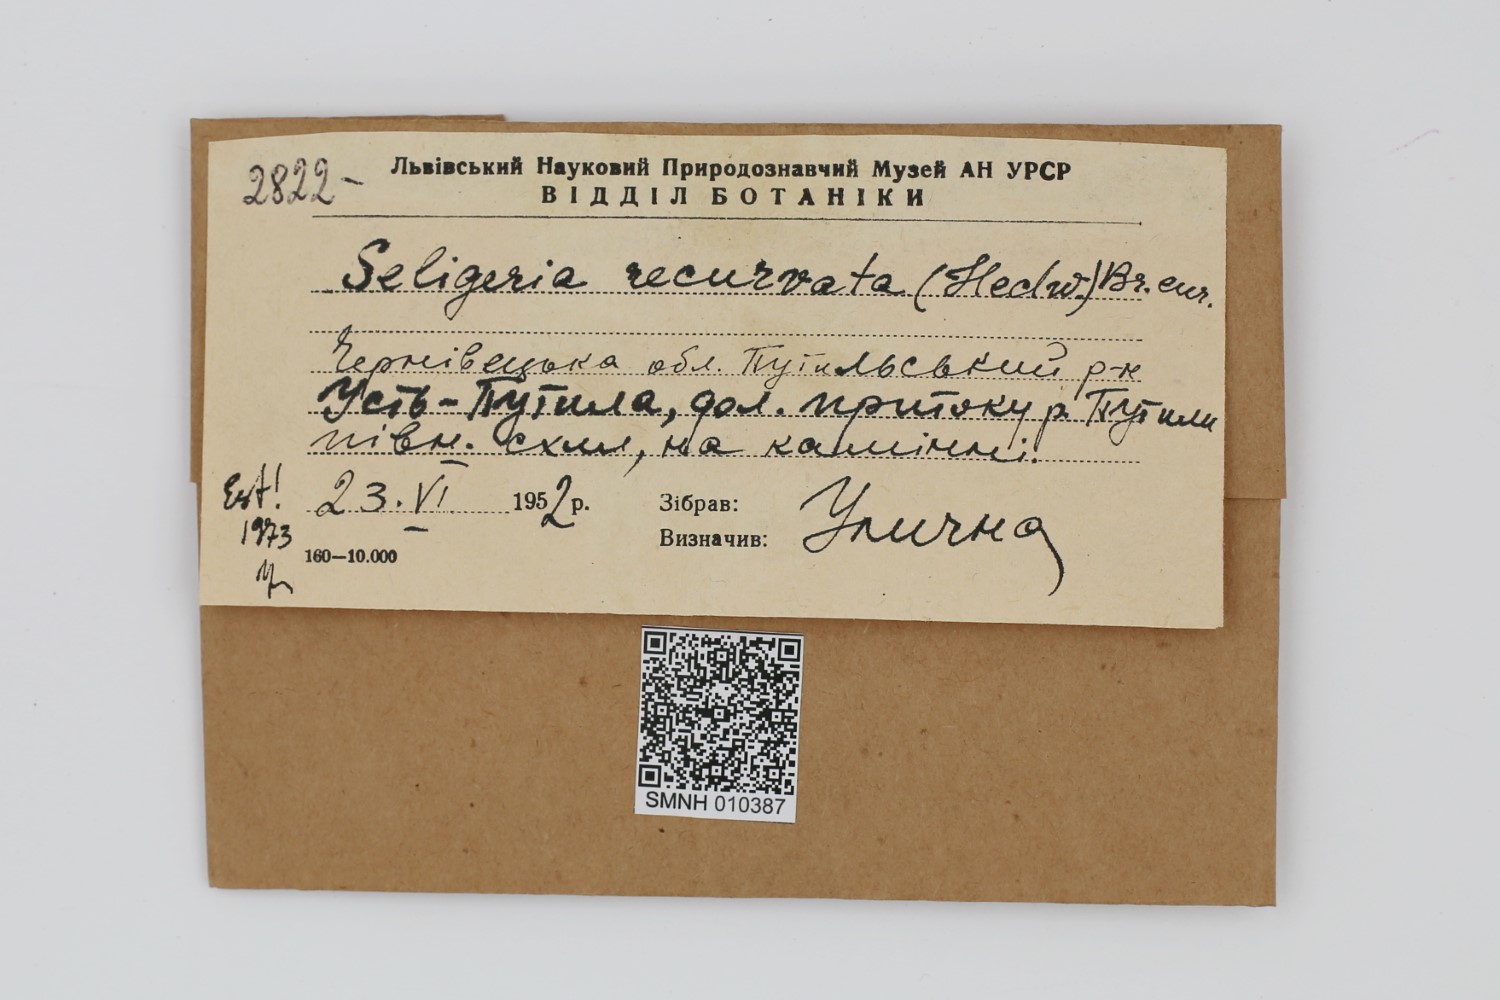 2822-
Львівський Науковий Природознавчий Музей АН УРСР
ВІДДІЛ БОТАНІКИ
Seligeria recurvata (Hedw.) Br. eur.
Чернівецька обл. Путильський р-н
Усть-Путила, дол. притоку р. Путили
півн. схил, на камінні.
Ext! 23.VI 1952 р. Зібрав: Улична
1973 Визначив:
160—10.000
SMNH 010387